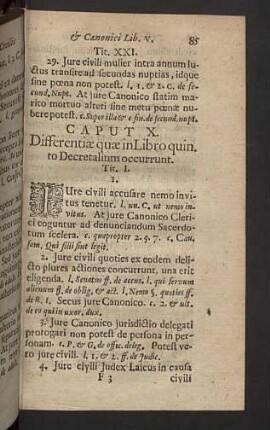 & Canonici Lib. V. 85
Tit. XXI.
29. Jure civili mulier intra annum lu-
ctus transire ad secundas nuptias, idque
sine pœna non potest. l. 1. & 2. C. de se-
cund. Nupt. At jure Canonico statim ma-
rito mortuo alteri sine metu pœnæ nu-
bere potest. c. Super illa & c. fin. de secund. nupt.
CAPUT X.
Differentiæ quæ in Libro quin-
to Decretalium occurrunt.
Tit. I.
1.
JUre civili accusare nemo invi-
tus tenetur. l. un. C. ut nemo in-
vitus. At jure Canonico Cleri-
ci coguntur ad denunciandum Sacerdo-
tum scelera. c. quapropter 2. q. 7. c. Cau-
sam. Qui filii sint legit.
2. Jure civili quoties ex eodem deli-
cto plures actiones concurrunt, una erit
eligenda. l. Senatus ff. de accus. l. qui servum
alienum ff. de oblig. & act. l. Nemo §. quoties ff.
de R. I. Secus jure Canonico. c. 2. & ult.
de eo qui in uxor. dux.
3. Jure Canonico jurisdictio delegati
prorogari non potest de persona in per-
sonam. c. P. & G. de offic. deleg. Potest ve-
ro jure civili. l. 1. & 2. ff. de Judic.
4. Jure civili Judex Laicus in causa
F 3 civili